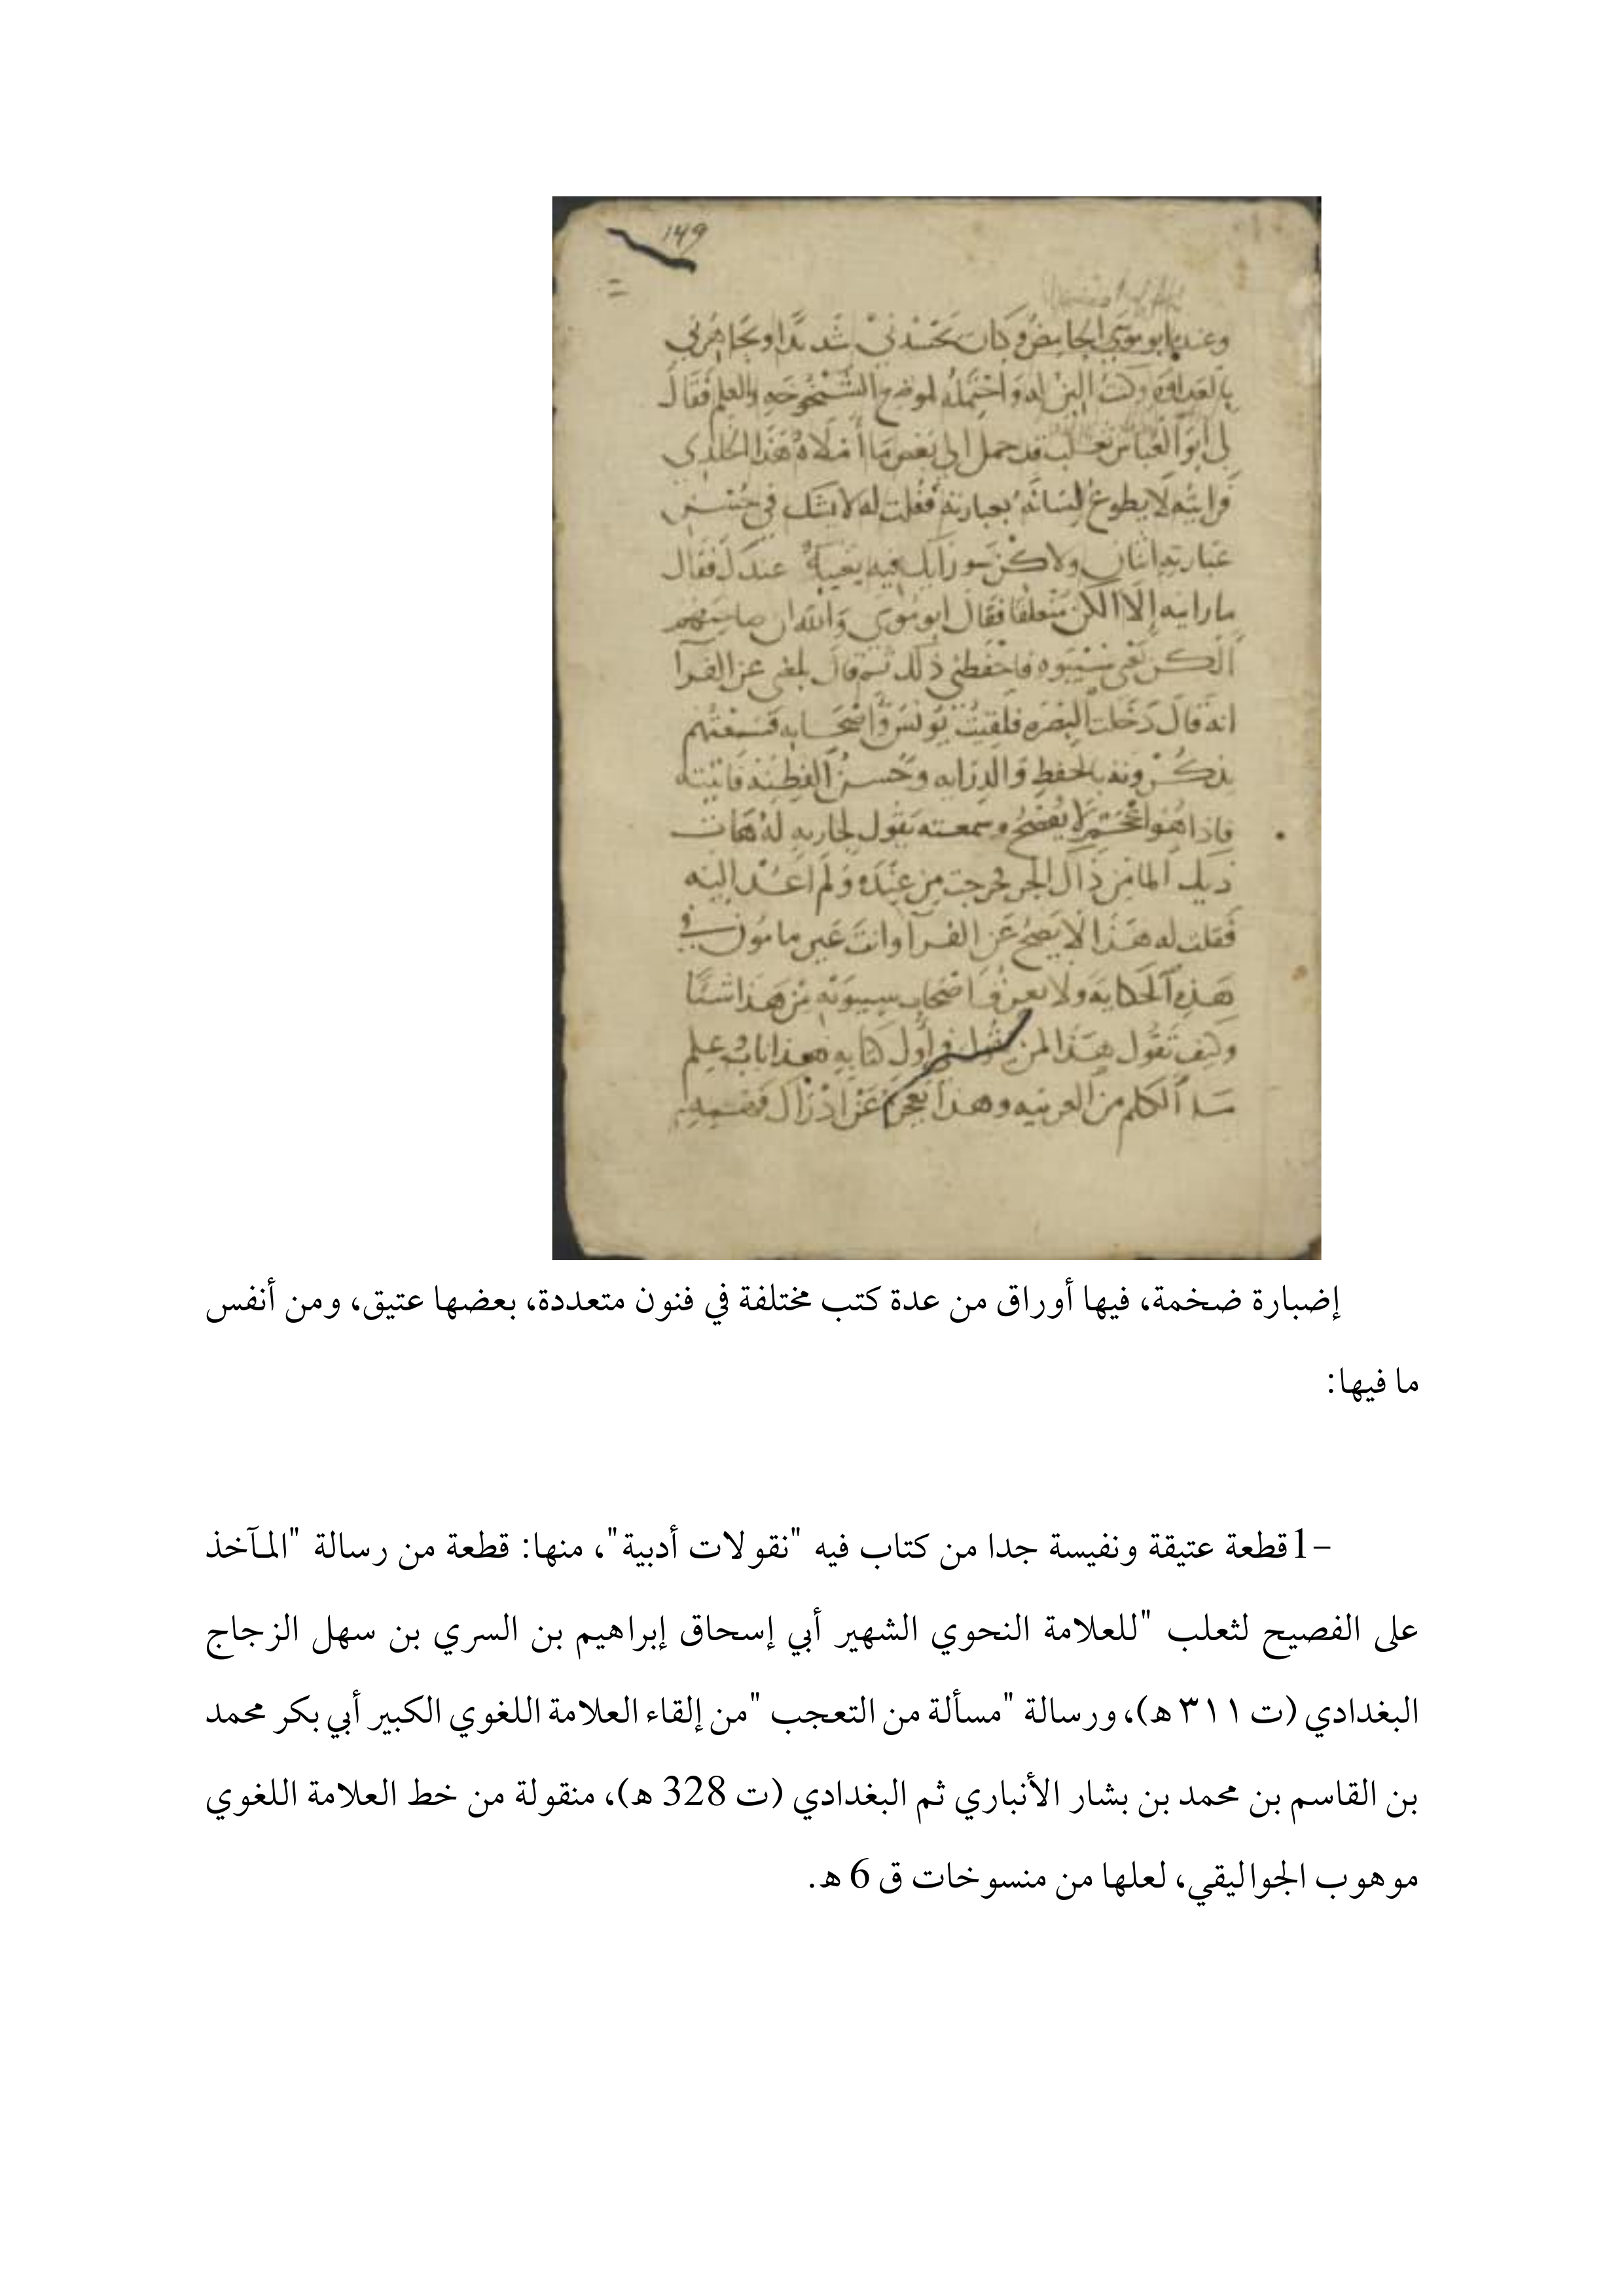 ١٤٩
وعنده ابو موسى الحامض وكان يحسدني شديدا ويجاهرني
بالعداوه وكنت الين له واحتمله لموضع الشيخوخه والعلم فقال
لي ابو العباس ثعلب قد حمل الي بعض ما املاه هذا الخلدي
فرايته لا يطوع لسانه بعبارته فقلت له لا يشك في حسن
عبارته اثنان ولاكن سو رايك فيه يعيبه عندك فقال
ما رايته إلا الكن متعلقا فقال ابو موسى والله ان صاحبهم
الكن يعني سيبويه فاحفظني ذلك ثم قال بلغني عن الفرا
انه قال دخلت البصره فلقيت يونس واصحابه فسمعتهم
يذكرونه بالحفظ والدرايه وحسن الفطنه فاتيته
فاذا هو اعجم لا يفصح وسمعته يقول لجاريه له هات
ذيك الما من ذاك الجر فخرجت من عنده ولم اعد اليه
فقلت له هذا لا يصح عن الفرا وانت غير مامون في
هذه الحكايه ولا يعرف اصحاب سيبويه من هذا شيئا
وكيف تقول هذا لمن يقول في اول كتابه هذا باب علم
ما الكلم من العربيه وهذا يعجز عن ادراك فهمه
إضبارة ضخمة، فيها أوراق من عدة كتب مختلفة في فنون متعددة، بعضها عتيق، ومن أنفس
ما فيها:
1- قطعة عتيقة ونفيسة جدا من كتاب فيه "نقولات أدبية"، منها: قطعة من رسالة "المآخذ
على الفصيح لثعلب "للعلامة النحوي الشهير أبي إسحاق إبراهيم بن السري بن سهل الزجاج
البغدادي (ت ٣١١ ه)، ورسالة "مسألة من التعجب "من إلقاء العلامة اللغوي الكبير أبي بكر محمد
بن القاسم بن محمد بن بشار الأنباري ثم البغدادي (ت 328 ه)، منقولة من خط العلامة اللغوي
موهوب الجواليقي، لعلها من منسوخات ق 6 ه.